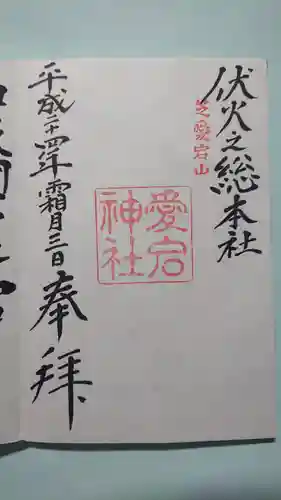 伏火之総本社
芝愛宕山
愛宕
神社
奉拝
平成二十四年霜月三日